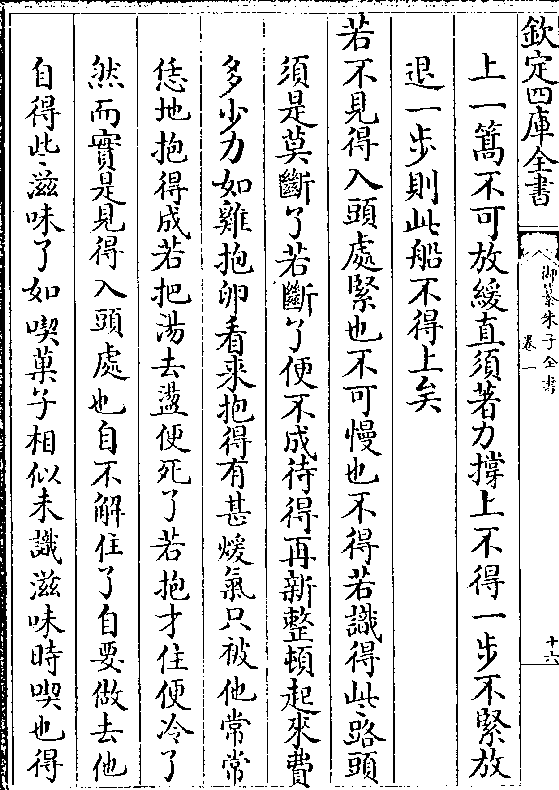 欽定四庫全書
御纂朱子全書
卷一
十六
上一篙不可放緩直須著力撑上不得一步不緊放
退一步則此船不得上矣
若不見得入頭處緊也不可慢也不得若識得此路頭
須是莫斷了若斷了便不成待得再新整頓起來費
多少力如雞抱卵看来抱得有甚煖氣只被他常常
恁地抱得成若把湯去盪便死了若抱才住便冷了
然而實是見得入頭處也自不解住了自要做去他
自得此滋味了如喫菓子相似未識滋味時喫也得